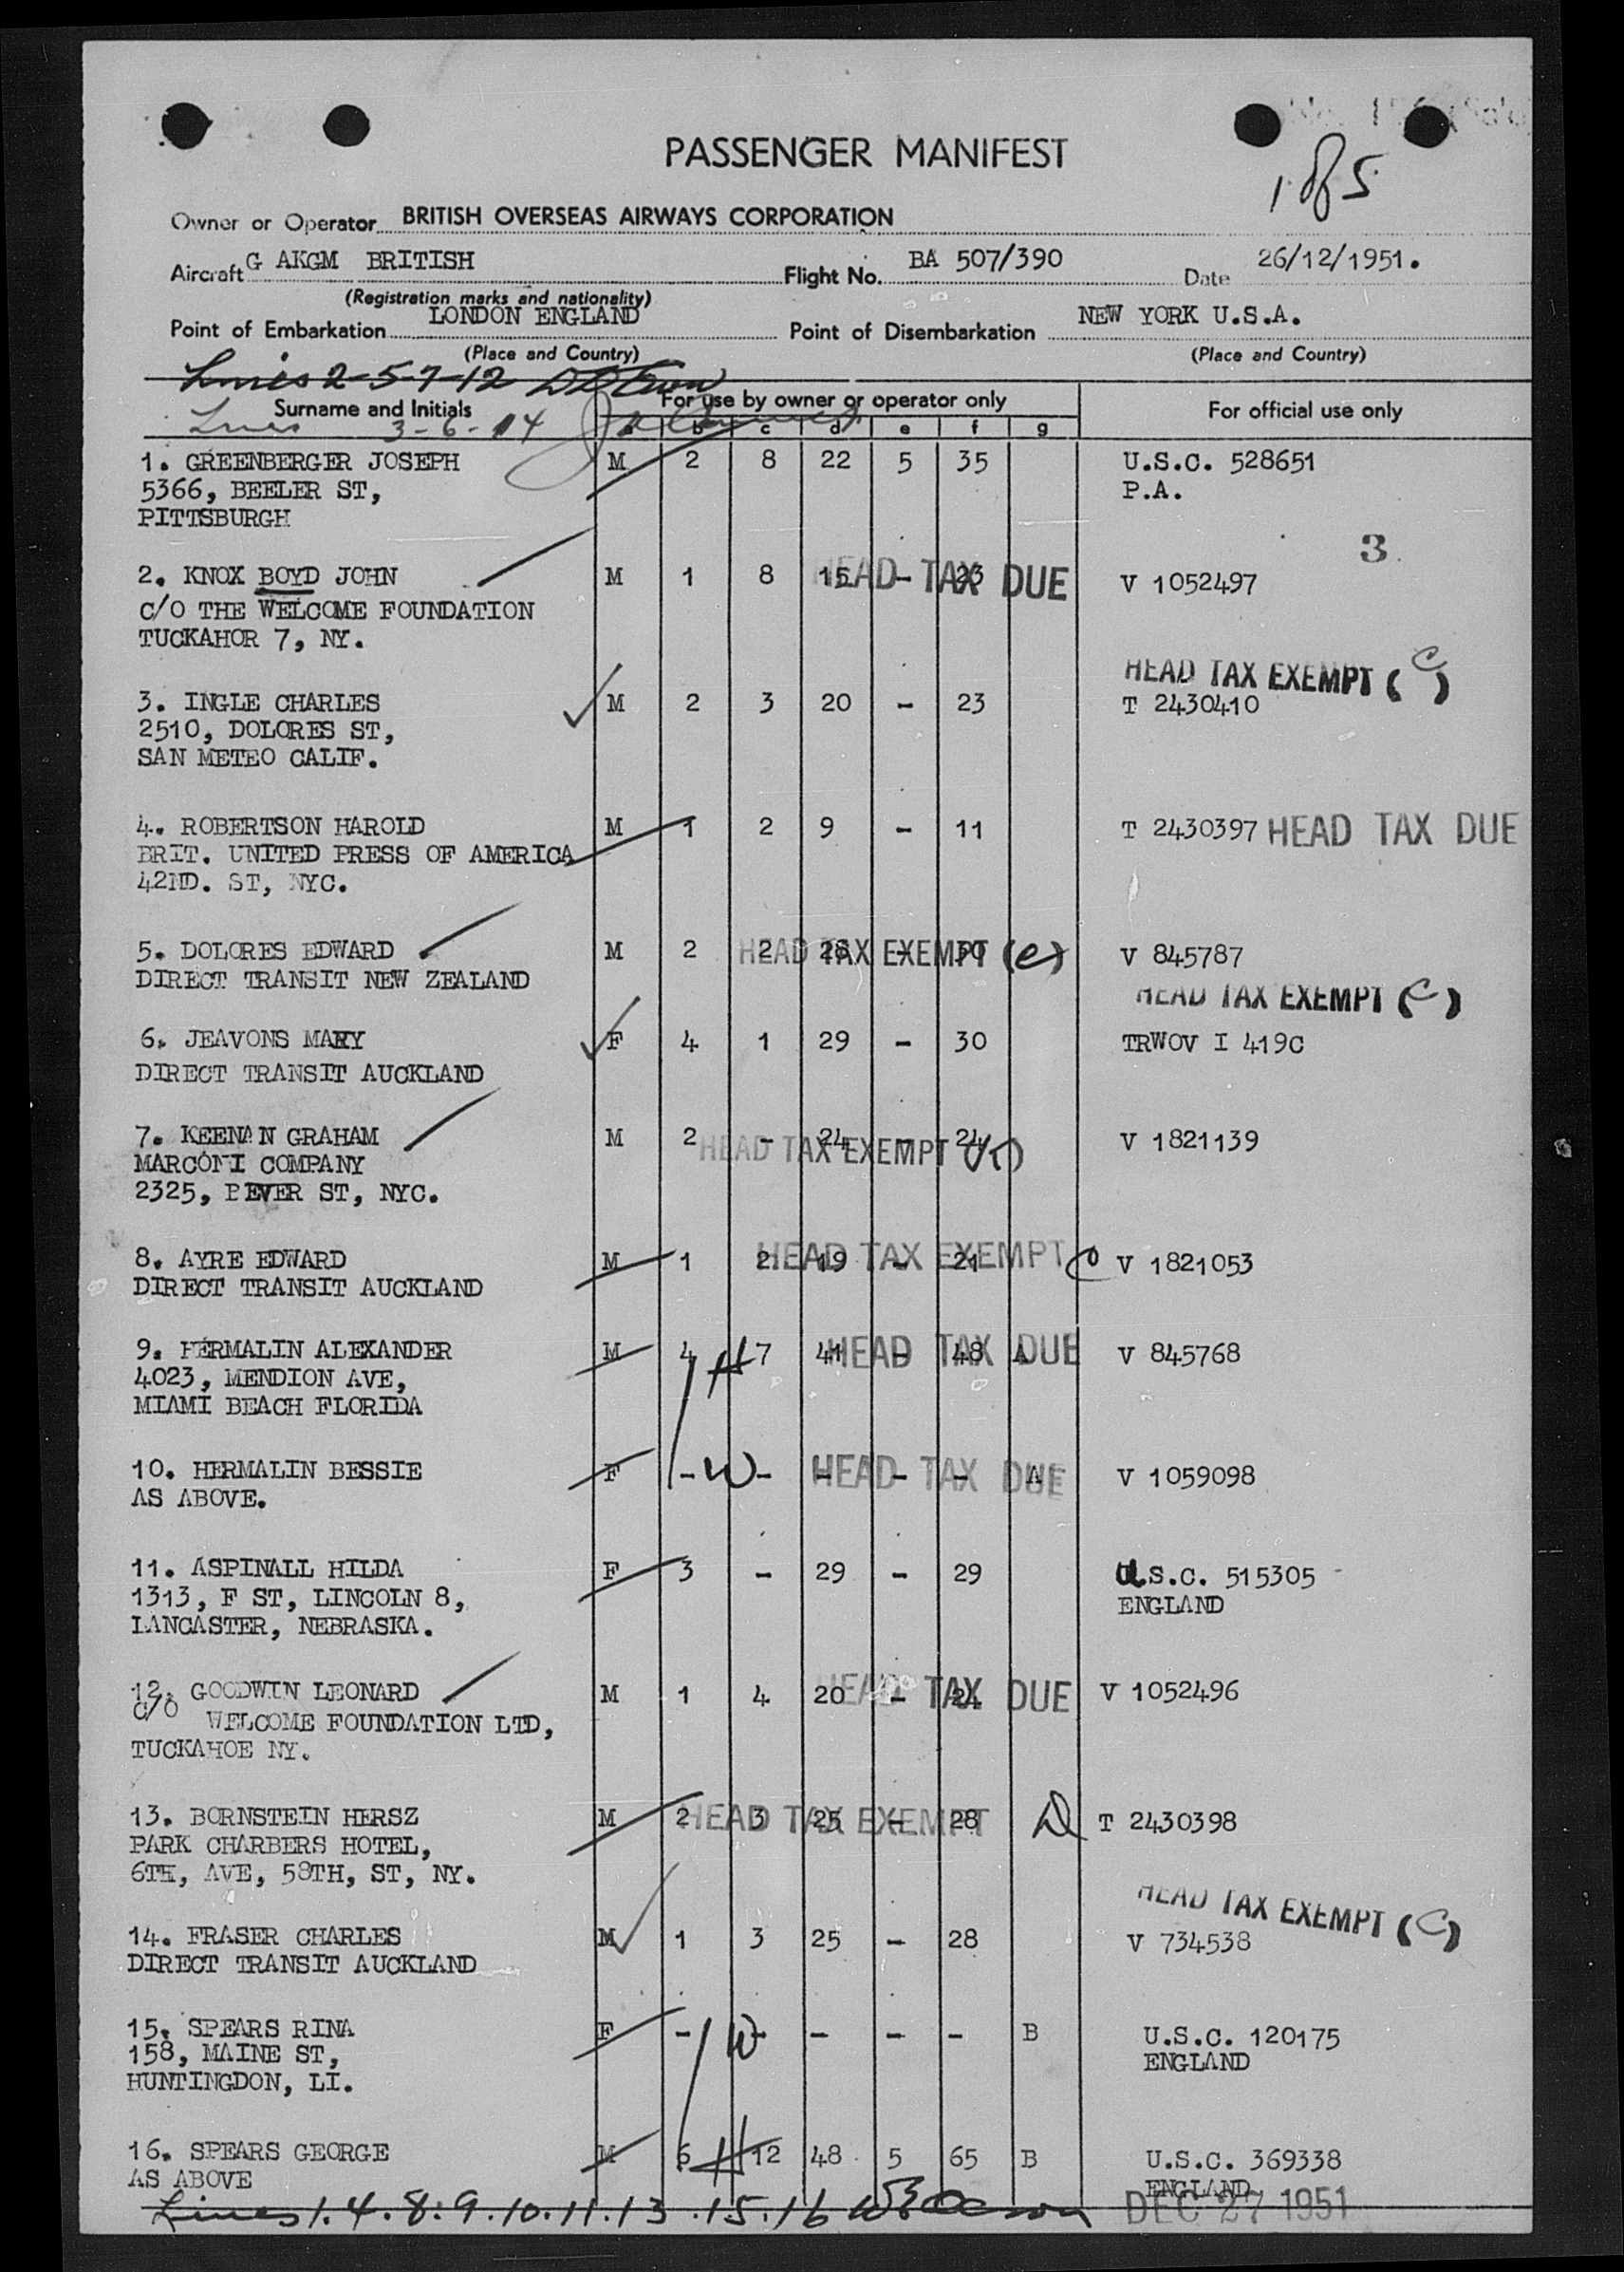 PASSENGER MANIFEST
1 of 5
Owner or Operator BRITISH OVERSEAS AIRWAYS CORPORATION
Aircraft G AKGM BRITISH Flight No. BA 507/390 Date 26/12/1951.
(Registration marks and nationality)
Point of Embarkation LONDON ENGLAND Point of Disembarkation NEW YORK U.S.A.
(Place and Country) (Place and Country)
Lines 2-5-7-12
Surname and Initials For use by owner or operator only For official use only
Lines 3-6-14
a b c d e f g
1. GREENBERGER JOSEPH M 2 8 22 5 35 U.S.C. 528651
5366, BEELER ST, P.A.
PITTSBURGH
3
2. KNOX BOYD JOHN M 1 8 15 - 23 HEAD TAX DUE V 1052497
C/O THE WELCOME FOUNDATION
TUCKAHOR 7, NY.
HEAD TAX EXEMPT (C)
3. INGLE CHARLES M 2 3 20 - 23 T 2430410
2510, DOLORES ST,
SAN METEO CALIF.
4. ROBERTSON HAROLD M 1 2 9 - 11 T 2430397 HEAD TAX DUE
BRIT. UNITED PRESS OF AMERICA
42ND. ST, NYC.
5. DOLORES EDWARD M 2 2 28 - 30 HEAD TAX EXEMPT (e) V 845787
DIRECT TRANSIT NEW ZEALAND
HEAD TAX EXEMPT (C)
6. JEAVONS MARY F 4 1 29 - 30 TRWOV I 419C
DIRECT TRANSIT AUCKLAND
7. KEENAN GRAHAM M 2 - 24 - 24 HEAD TAX EXEMPT V 1821139
MARCONI COMPANY
2325, BEVER ST, NYC.
8. AYRE EDWARD M 1 2 19 - 21 HEAD TAX EXEMPT C V 1821053
DIRECT TRANSIT AUCKLAND
9. HERMALIN ALEXANDER M 4 H 7 41 - 48 A HEAD TAX DUE V 845768
4023, MENDION AVE,
MIAMI BEACH FLORIDA
10. HERMALIN BESSIE F - W - - - - A HEAD TAX DUE V 1059098
AS ABOVE.
11. ASPINALL HILDA F 3 - 29 - 29 U.S.C. 515305
1313, F ST, LINCOLN 8, ENGLAND
LANCASTER, NEBRASKA.
12. GOODWIN LEONARD M 1 4 20 - 24 HEAD TAX DUE V 1052496
C/O WELCOME FOUNDATION LTD,
TUCKAHOE NY.
13. BORNSTEIN HERSZ M 2 3 25 - 28 HEAD TAX EXEMPT D T 2430398
PARK CHARBERS HOTEL,
6TH, AVE, 58TH, ST, NY.
HEAD TAX EXEMPT (C)
14. FRASER CHARLES M 1 3 25 - 28 V 734538
DIRECT TRANSIT AUCKLAND
15. SPEARS RINA F - W - - - - B U.S.C. 120175
158, MAINE ST, ENGLAND
HUNTINGDON, LI.
16. SPEARS GEORGE M 6 H 12 48 5 65 B U.S.C. 369338
AS ABOVE ENGLAND
Lines 1.4.8.9.10.11.13.15.16 DEC 27 1951